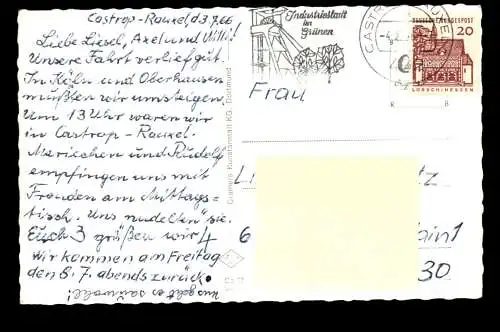 Castrop-Rauxel, d. 3.7.66
Liebe Liesel, Axel und Willi!
Unsere Fahrt verlief gut.
In Köln und Oberhausen
mußten wir umsteigen.
Um 13 Uhr waren wir
in Castrop-Rauxel.
Mariechen und Rudolf
empfingen uns mit
Freuden am Mittags-
tisch. Uns "nudelten" sie.
Euch 3 grüßen wir 4
Wir kommen am Freitag
den 8.7. abends zurück.
Uns geht es sauwohl!
Cramers Kunstanstalt KG., Dortmund
Industriestadt
im
Grünen
CASTR
DEUTSCHE BUNDESPOST
20
LORSCH/HESSEN
Frau
L tz
6 ain 1
30